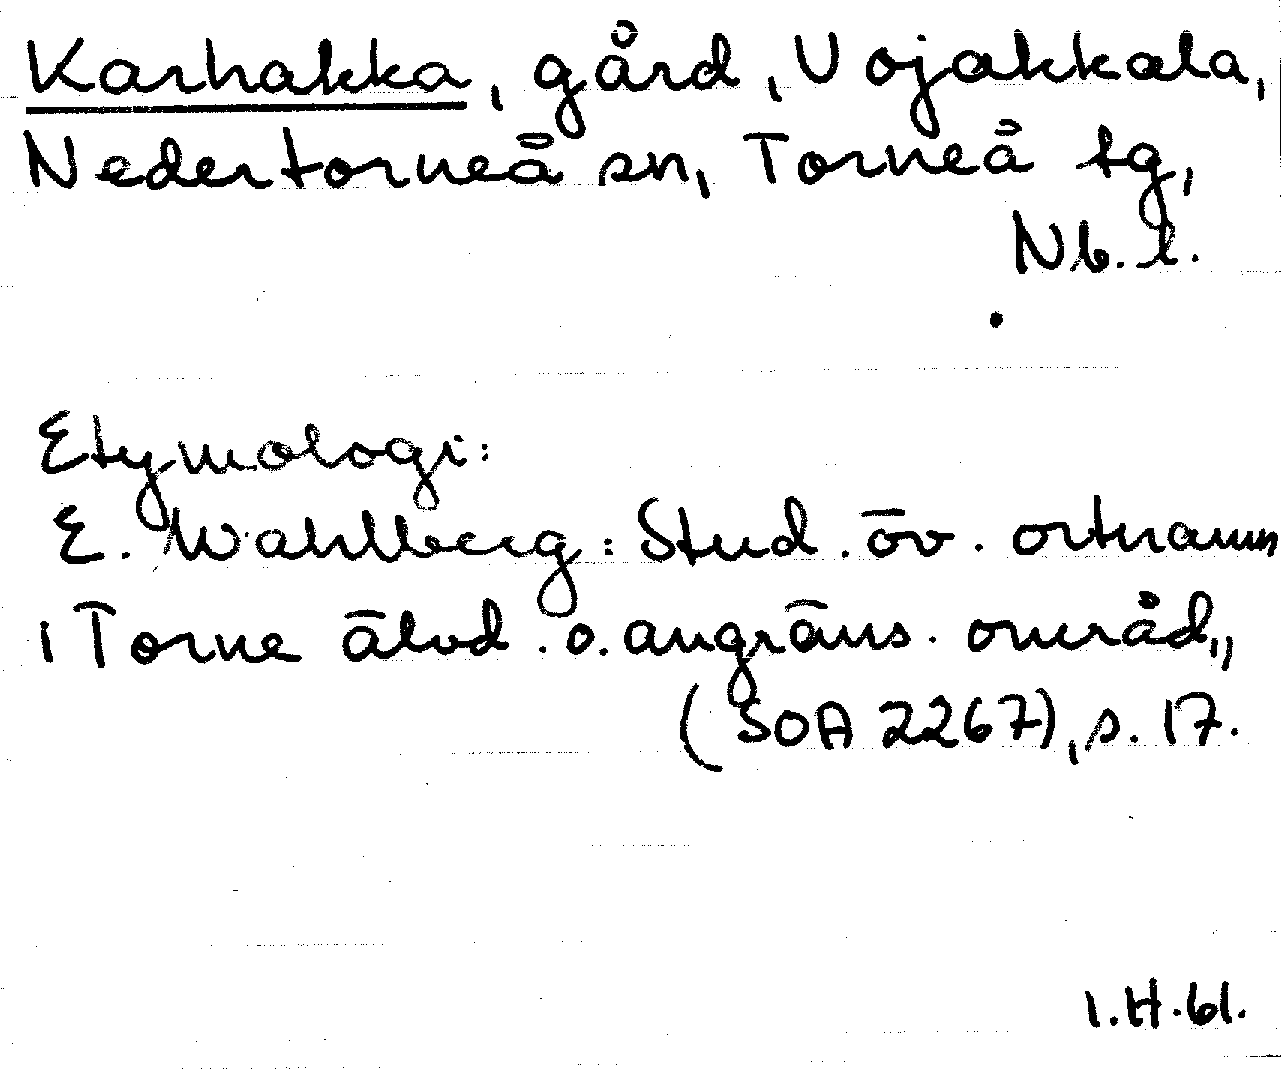 Karhakka, gård, Vojakkala,
Nedertorneå sn, Torneå tg,
Nb. l.
Etymologi:
E. Wahlberg: Stud. öv. ortnamn
i Torne älvd. o. angräns. områd.,
(SOA 2267), s. 17.
I.H.61.